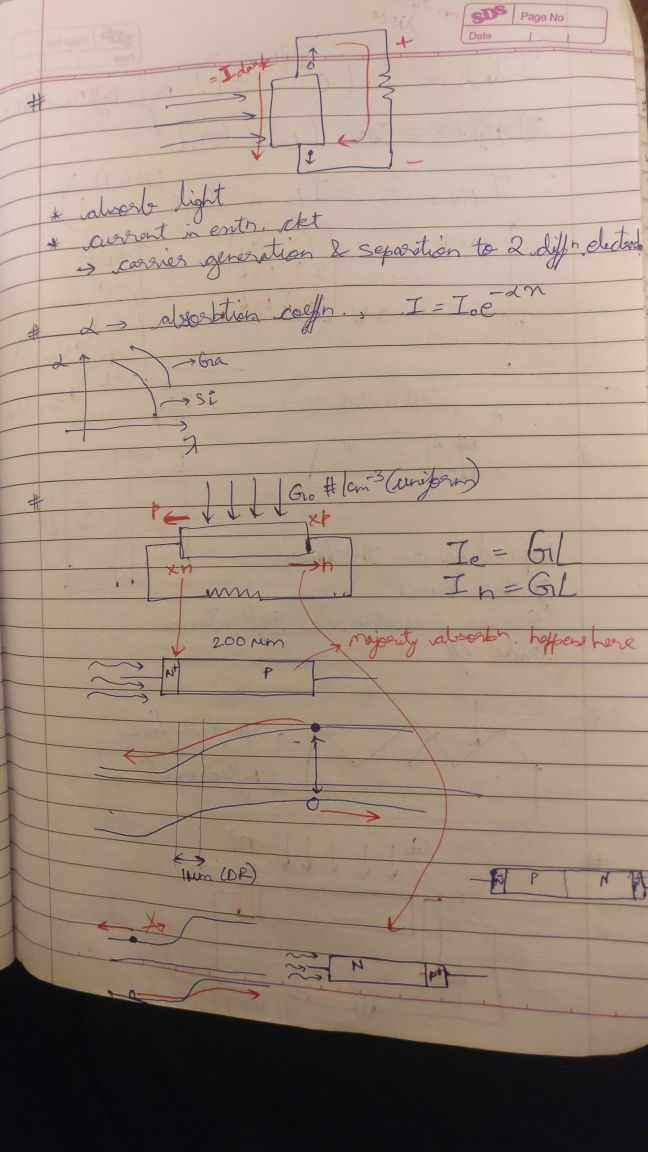 SDS Page No
Date
#
= I dark
+
-
* absorb light
* current in extn. ckt
→ carrier generation & separation to 2 diffn. electrode
# α → absorbtion coeffn., I = I₀e^-αx
α
→ Ga
→ Si
λ
#
G₀ #/cm⁻³ (uniform)
P ←
xp
xn
→ n
Iₑ = GL
I n = GL
200 μm
majority absorbn. happens here
N⁺ P
1μm (DR)
P N
X
N P⁺